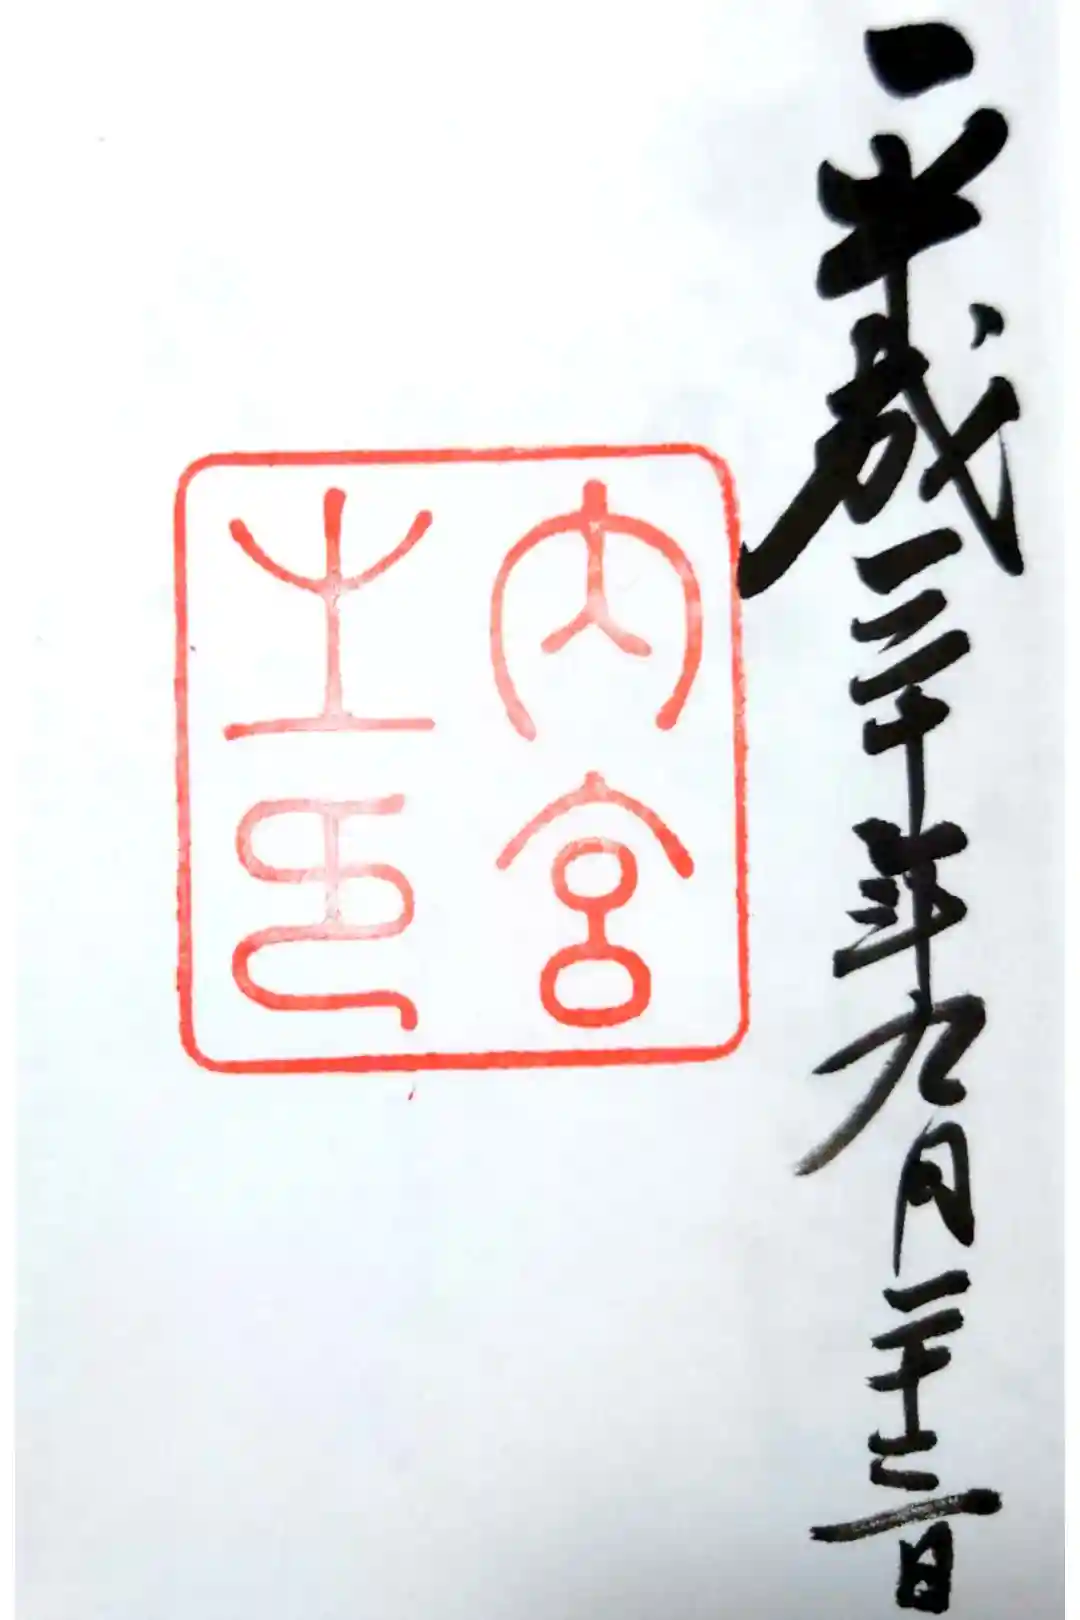 平成三十年九月二十三日
内宮
之印